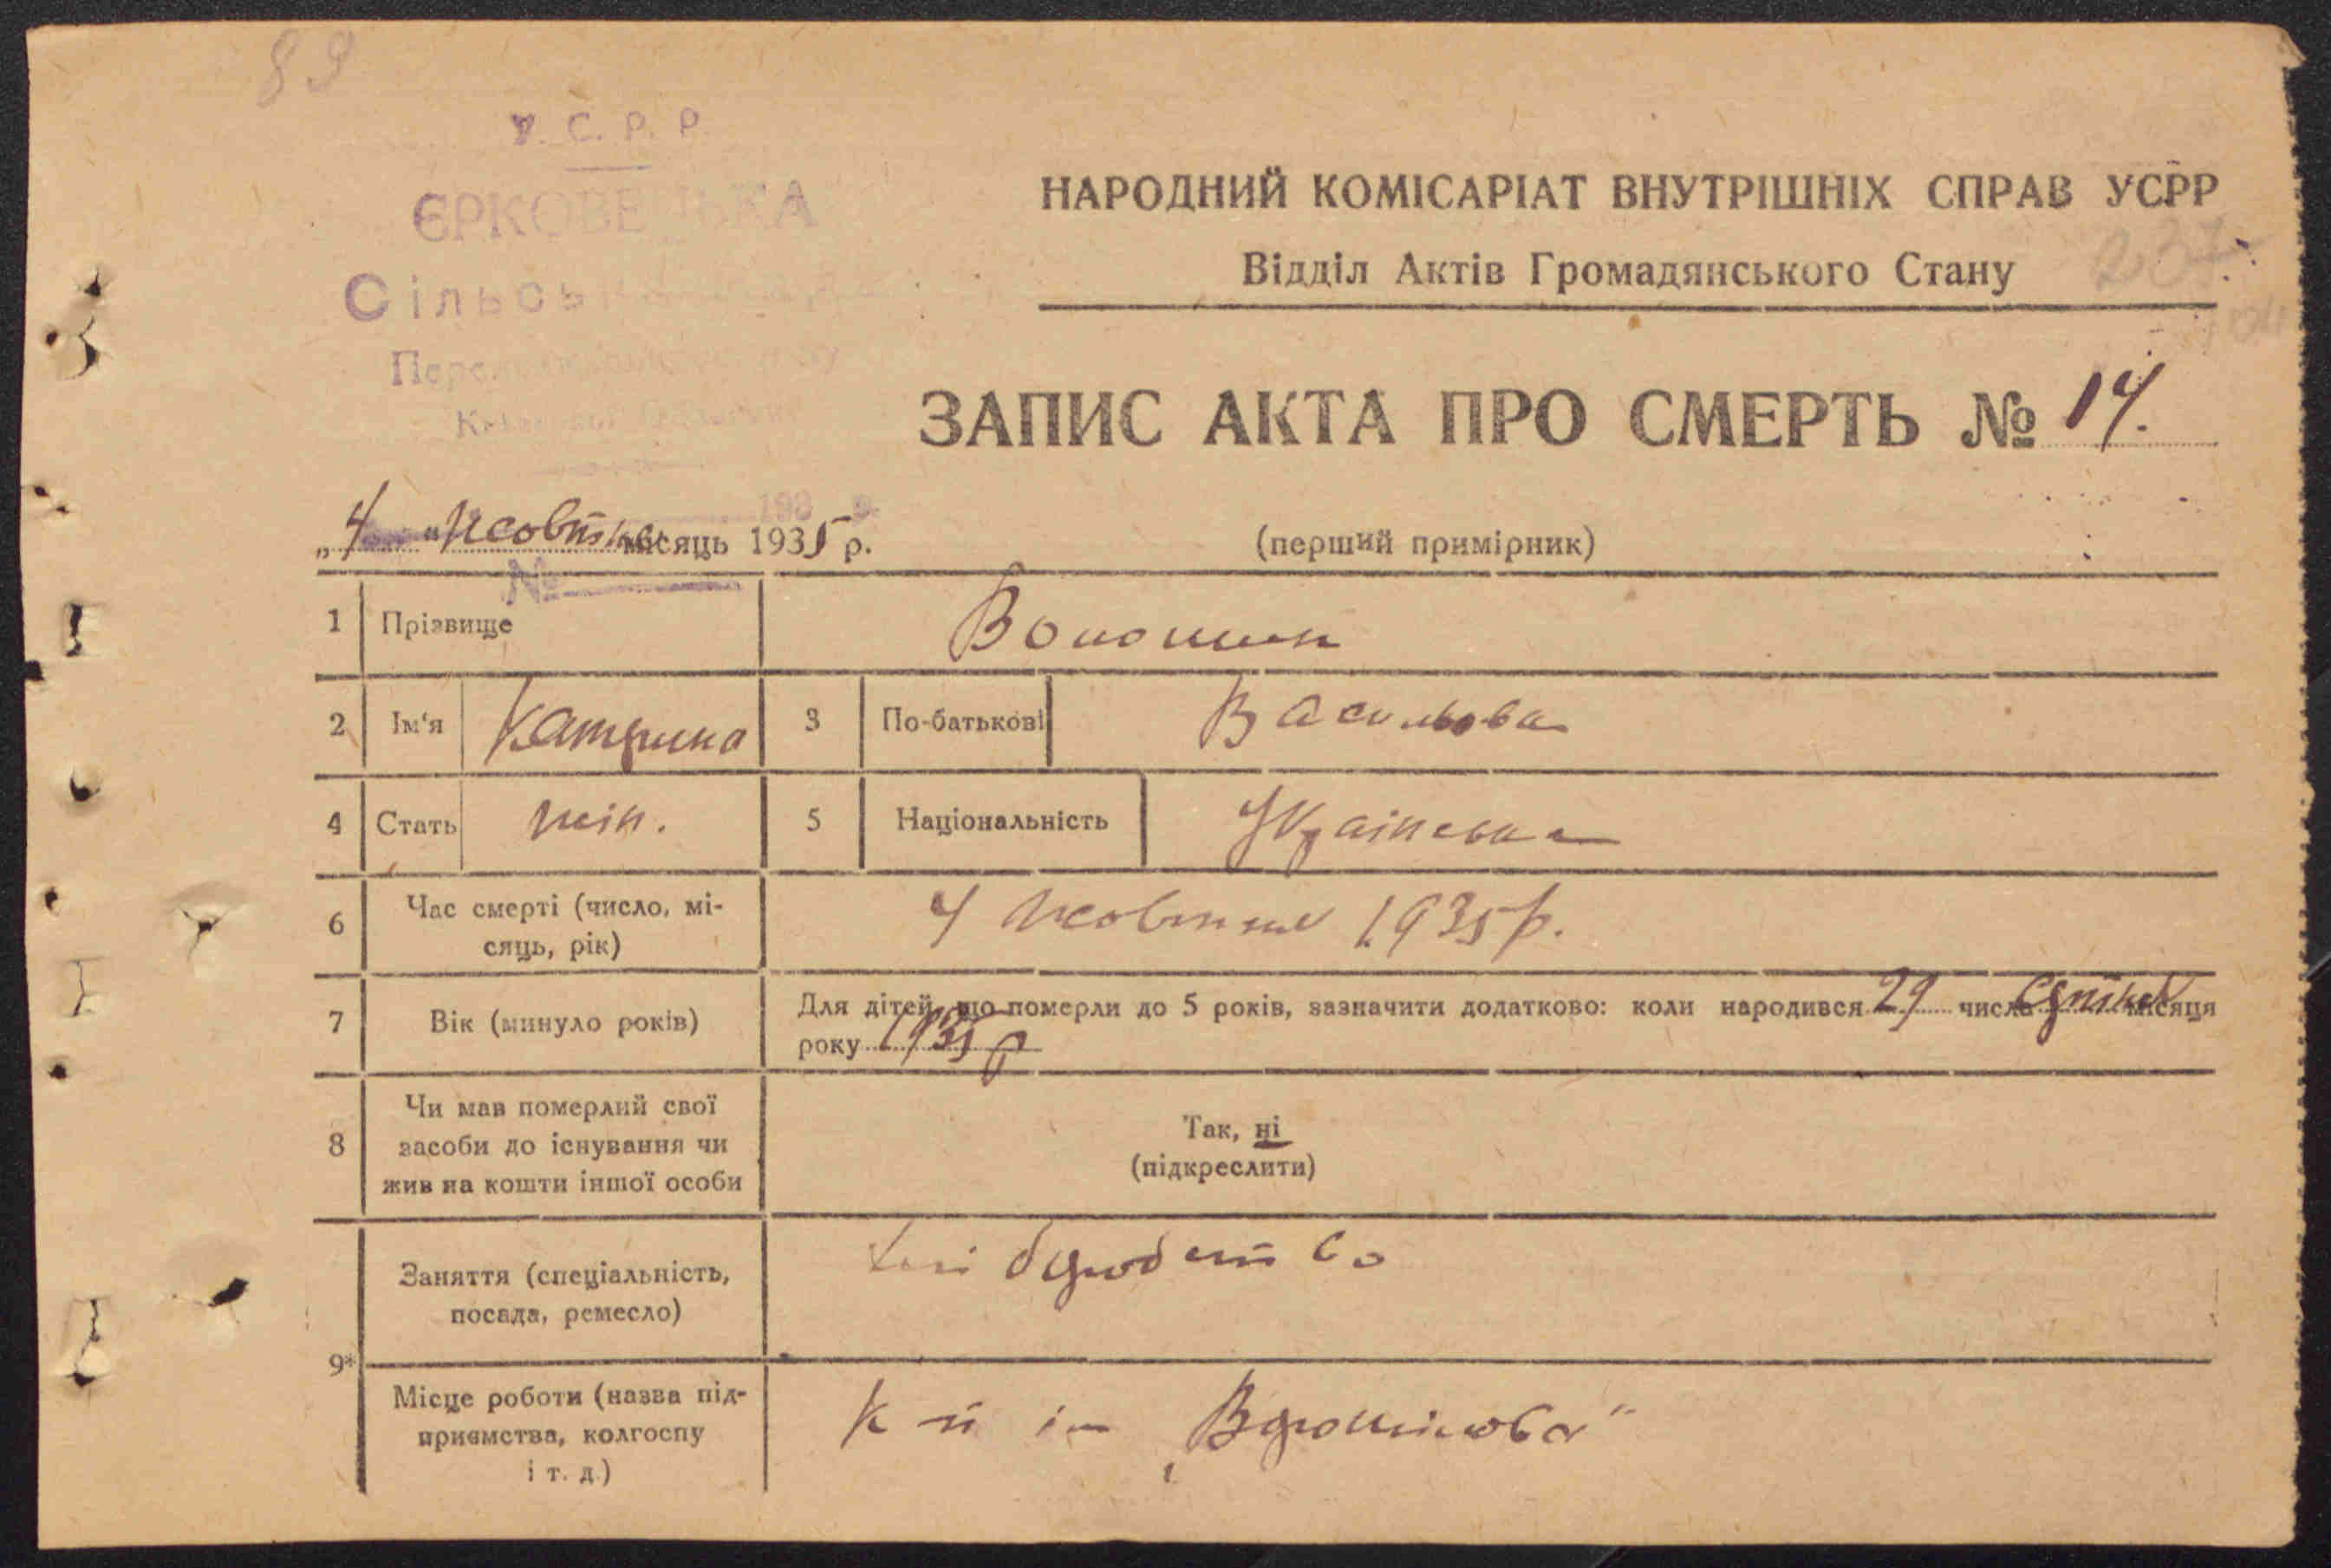 89
У. С. Р. Р.
ЄРКОВЕЦЬКА
НАРОДНИЙ КОМІСАРІАТ ВНУТРІШНІХ СПРАВ УСРР
Відділ Актів Громадянського Стану
237
ЗАПИС АКТА ПРО СМЕРТЬ № 14.
193 р.
„4" Жовтня місяць 1935 р.
(перший примірник)
№
1 Прізвище Волошин
2 Ім‘я Катрина 3 По-батькові Васильова
4 Стать жін. 5 Національність Українська
6 Час смерті (число, мі-
сяць, рік) 4 Жовтня 1935 р.
7 Вік (минуло років) Для дітей, що померли до 5 років, зазначити додатково: коли народився 29 числа Січня місяця
року 1935 р
8 Чи мав померлий свої
засоби до існування чи
жив на кошти іншої особи
Так, ні
(підкреслити)
9* Заняття (спеціальність,
посада, ремесло)
Місце роботи (назва під-
приємства, колгоспу
і т. д.)
ім „Ворошилова"